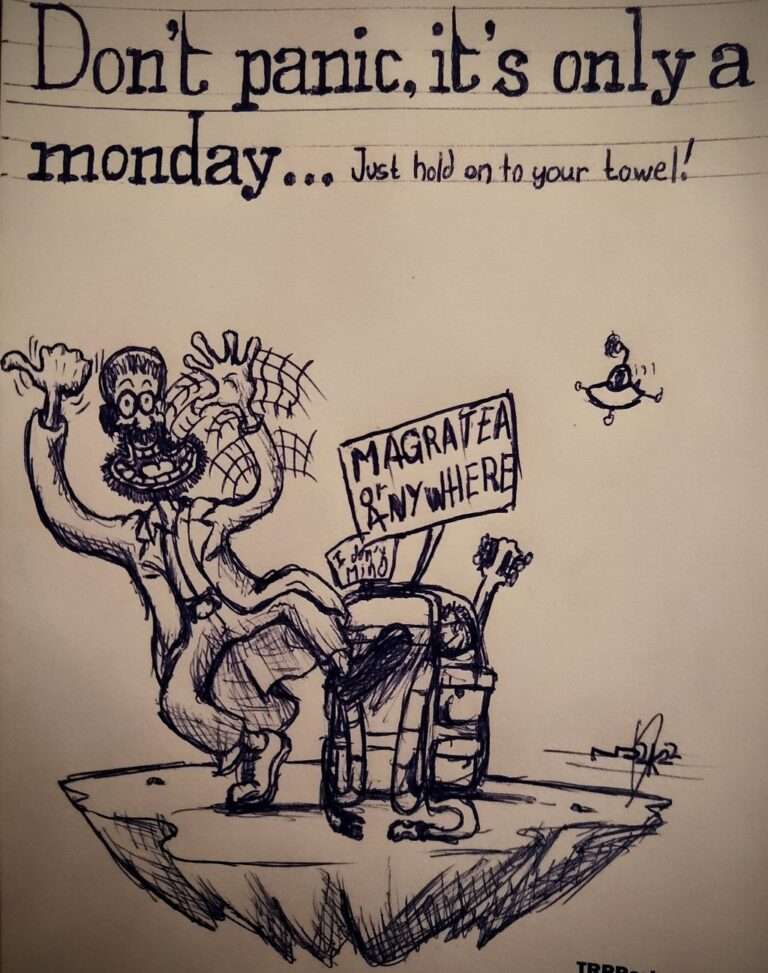 Don't panic, it's only a
monday... Just hold on to your towel!
MAGRATEA
or ANYWHERE
I don't
MIND